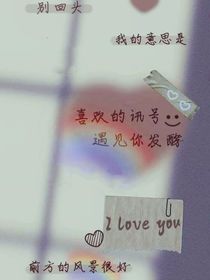 别回头
我的意思是
喜欢的讯号
遇见你发酵
I love you
前方的风景很好